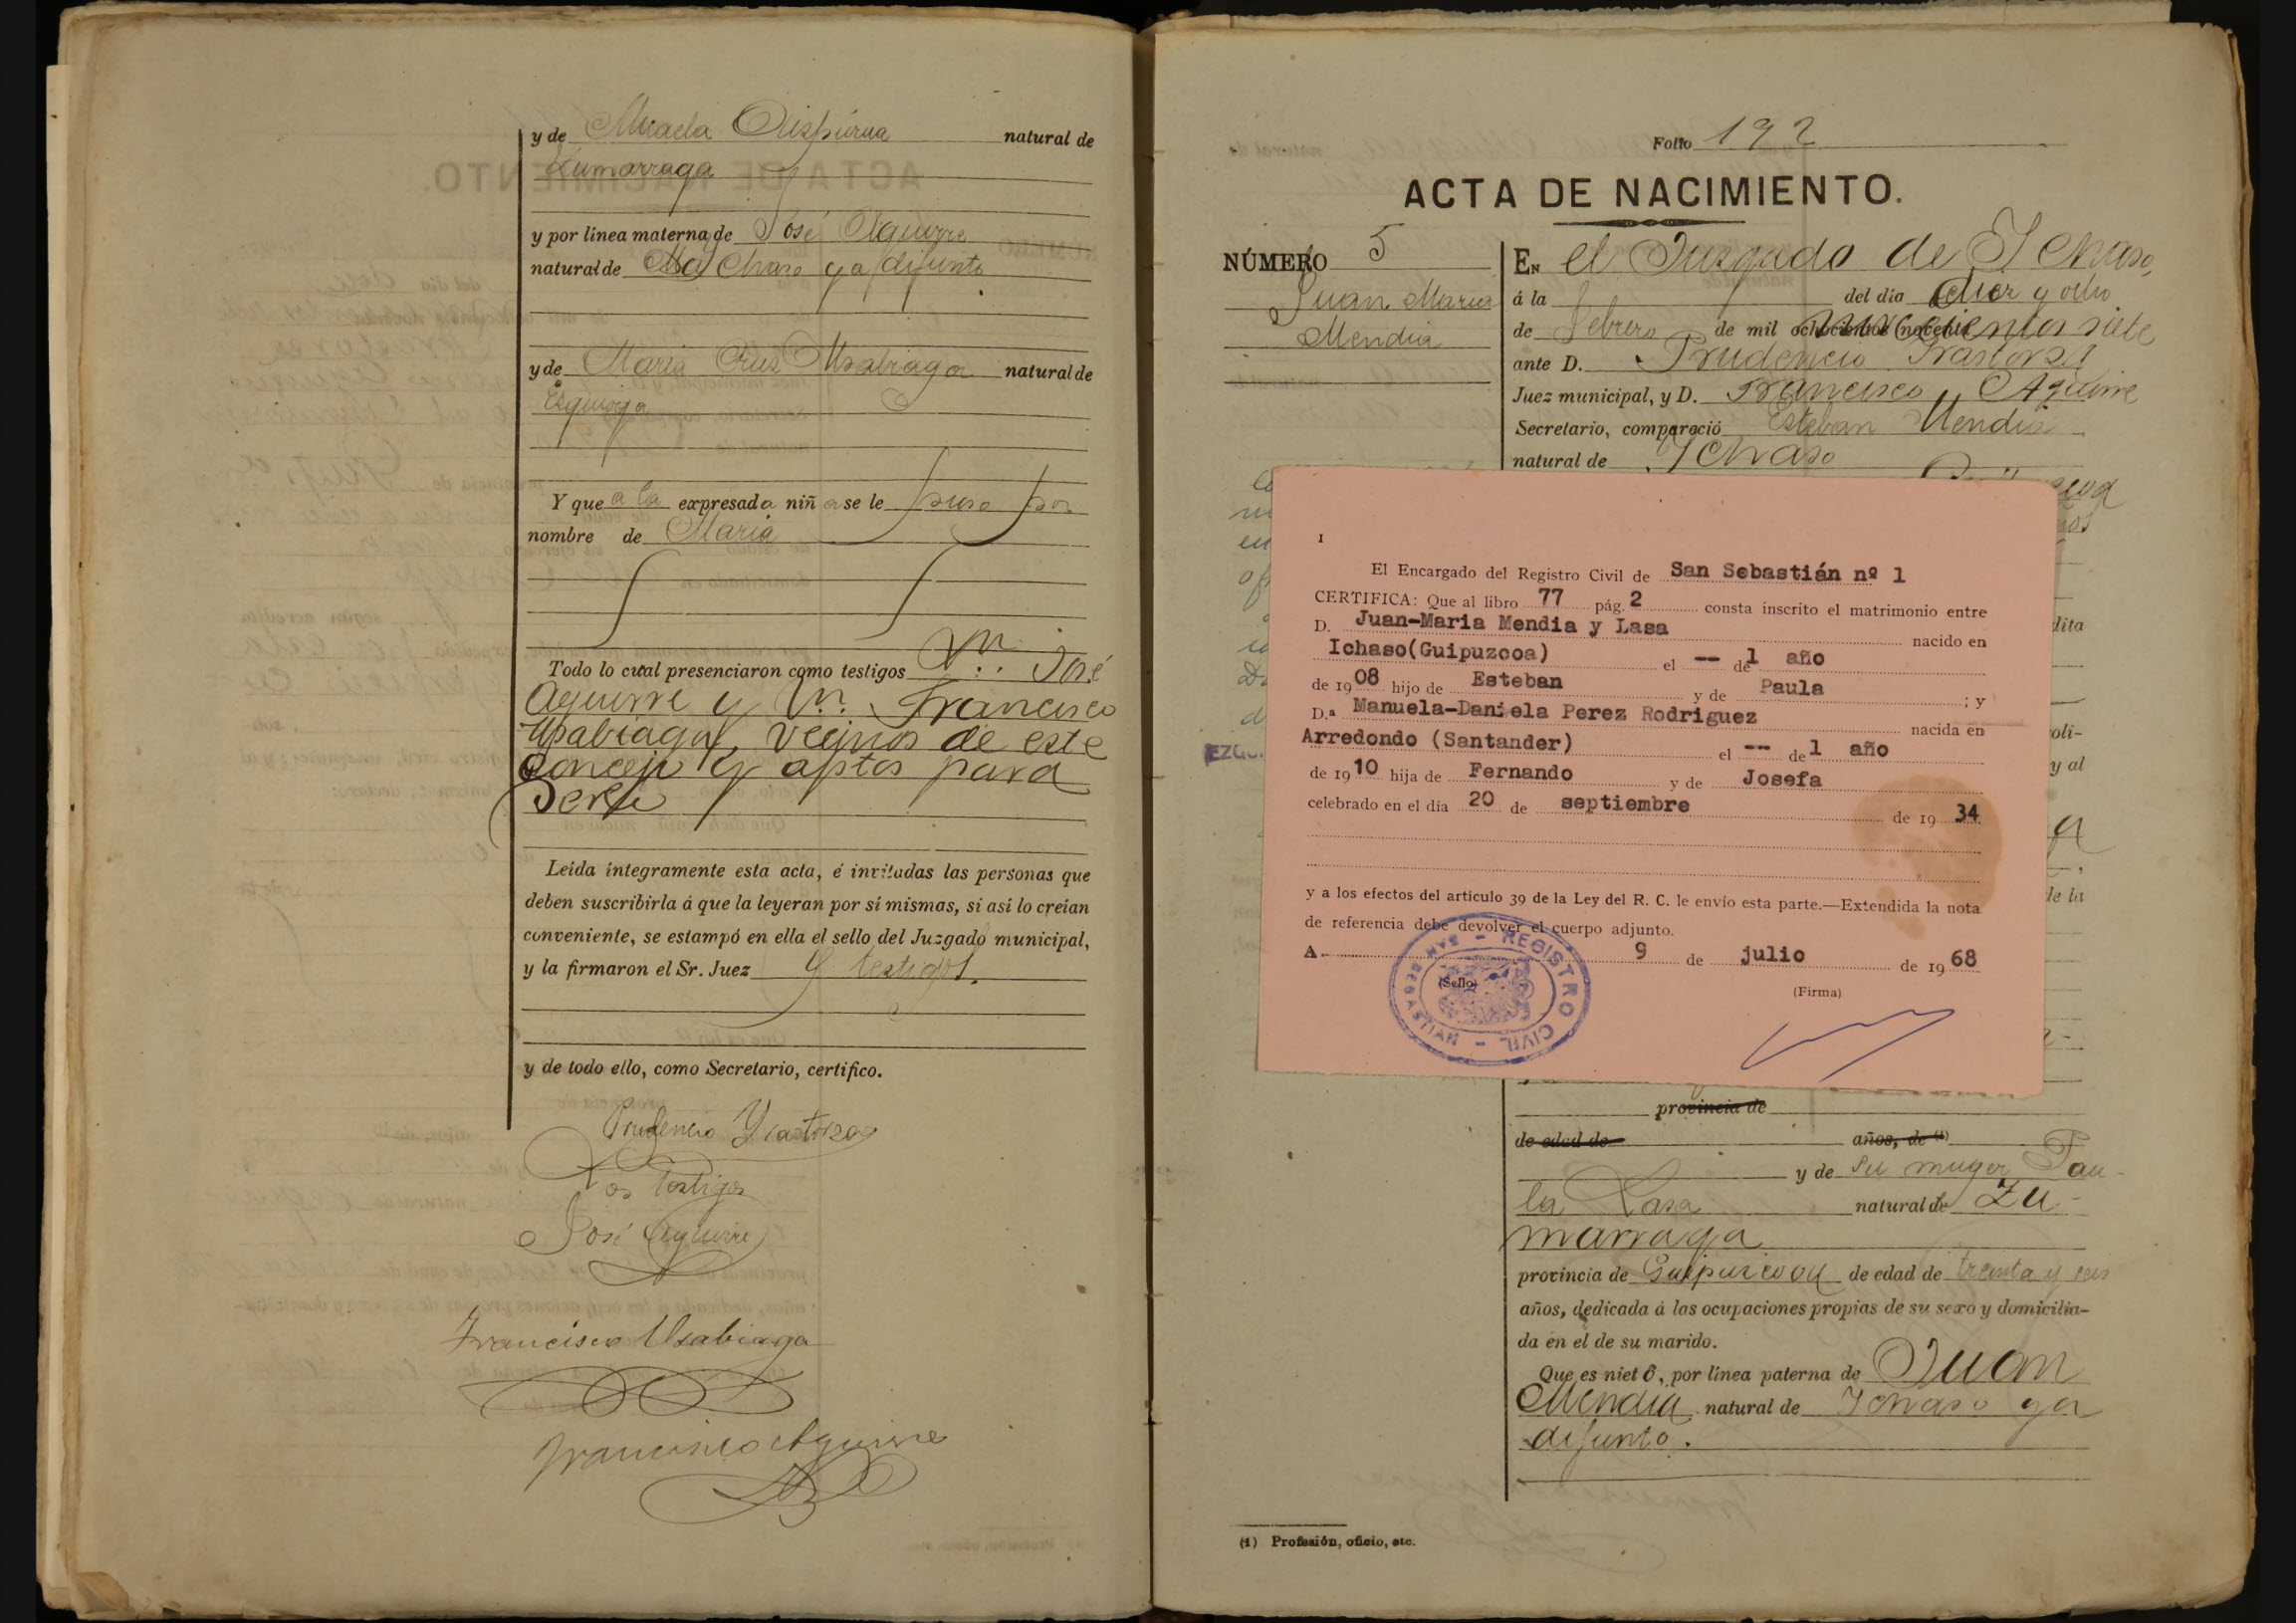 y de Micaela natural de
Zumarraga
y por línea materna de José Aguirre
natural de Ychaso ya difunto
y de Maria Cruz Usabiaga natural de
Esquioga
Y que a la expresada niña se le puso por
nombre de Maria
Todo lo cual presenciaron como testigos D.n José
Aguirre y D.n Francisco
Usabiaga, vecinos de este
Concejo y aptos para
serlo
Leída íntegramente esta acta, é invitadas las personas que
deben suscribirla á que la leyeran por sí mismas, si así lo creían
conveniente, se estampó en ella el sello del Juzgado municipal,
y la firmaron el Sr. Juez y testigos.
y de todo ello, como Secretario, certifico.
Prudencio Yrastorza
Los Testigos
José Aguirre
Francisco Usabiaga
Francisco Aguirre
Folio 192
ACTA DE NACIMIENTO.
NÚMERO 5
Juan Maria
Mendia
En el Juzgado de Ychaso,
á la del día diez y ocho
de Febrero de mil novecientos siete
ante D. Prudencio Yrastorza
Juez municipal, y D. Francisco Aguirre
Secretario, compareció Esteban Mendia
natural de Ychaso
1
El Encargado del Registro Civil de San Sebastián nº 1
CERTIFICA: Que al libro 77 pág. 2 consta inscrito el matrimonio entre
D. Juan-Maria Mendia y Lasa nacido en
Ichaso(Guipuzcoa) el -- de 1 año
de 1908 hijo de Esteban y de Paula ; y
D.ª Manuela-Daniela Perez Rodriguez nacida en
Arredondo (Santander) el -- de 1 año
de 1910 hija de Fernando y de Josefa
celebrado en el día 20 de septiembre de 1934
y a los efectos del artículo 39 de la Ley del R. C. le envío esta parte.—Extendida la nota
de referencia debe devolver el cuerpo adjunto.
A 9 de julio de 1968
(Sello)
(Firma)
REGISTRO CIVIL - SAN SEBASTIAN -
provincia de
de edad de años, de (1)
y de su muger Pau-
la Lasa natural de Zu-
marraga
provincia de Guipuzcoa de edad de treinta y seis
años, dedicada á las ocupaciones propias de su sexo y domicilia-
da en el de su marido.
Que es nieto, por línea paterna de Juan
Mendia natural de Ychaso ya
difunto.
(1) Profesión, oficio, etc.